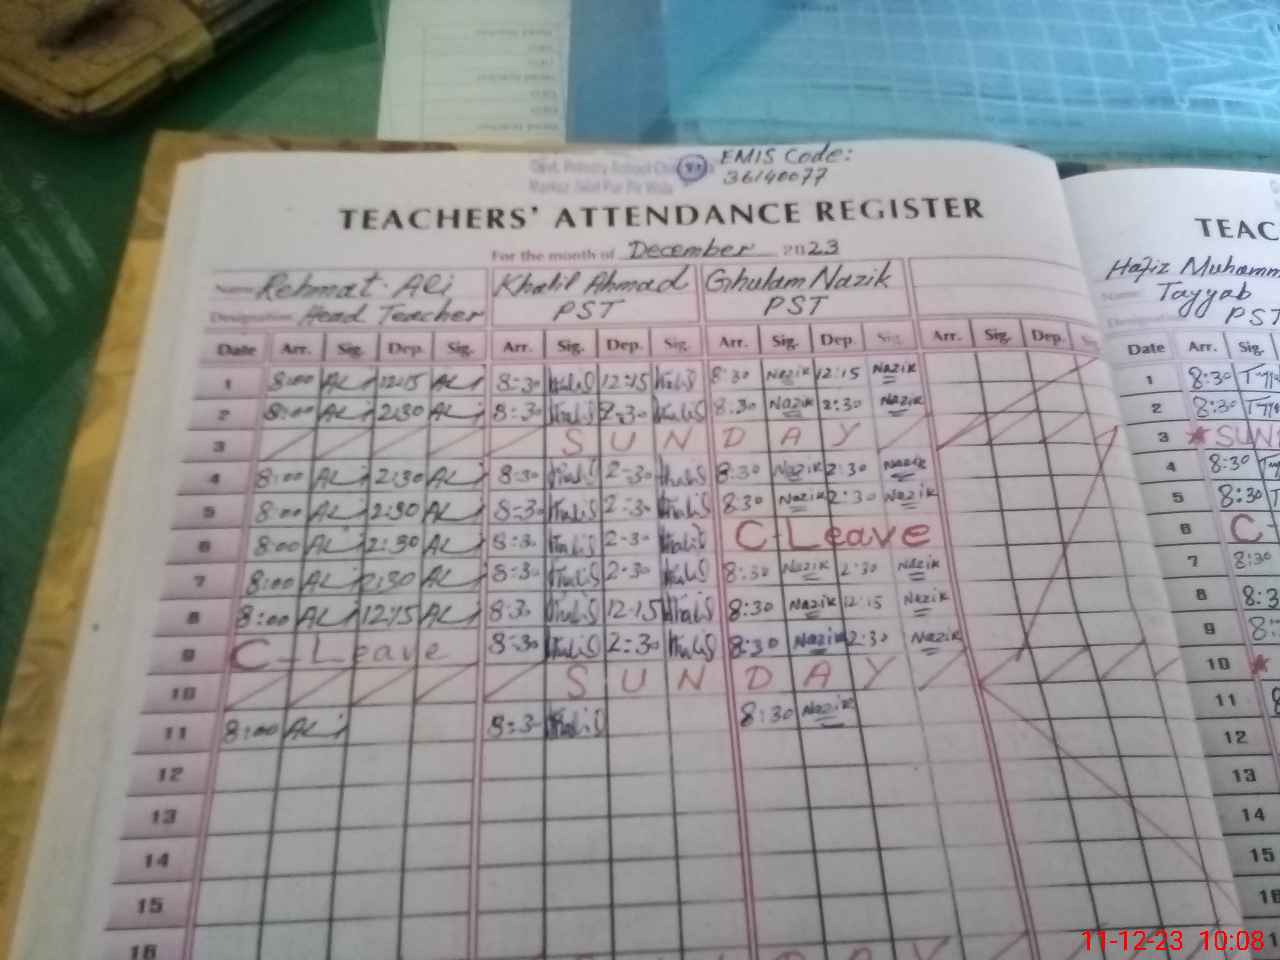 Govt. Primary School
EMIS Code:
36140077
TEACHERS' ATTENDANCE REGISTER
For the month of December 2023
Name Rehmat Ali Khalil Ahmad Ghulam Nazik
Designation Head Teacher PST PST
Date Arr. Sig. Dep. Sig. Arr. Sig. Dep. Sig. Arr. Sig. Dep. Sig. Arr. Sig. Dep. Sig.
1 8:00 ALi 12:15 ALi 8:30 Khalil 12:15 Khalil 8:30 Nazik 12:15 Nazik
2 8:00 ALi 2:30 ALi 8:30 Khalil 2:30 Khalil 8:30 Nazik 2:30 Nazik
3 SUNDAY
4 8:00 ALi 2:30 ALi 8:30 Khalil 2:30 Khalil 8:30 Nazik 2:30 Nazik
5 8:00 ALi 2:30 ALi 8:30 Khalil 2:30 Khalil 8:30 Nazik 2:30 Nazik
6 8:00 ALi 2:30 ALi 8:30 Khalil 2:30 Khalil C-Leave
7 8:00 ALi 2:30 ALi 8:30 Khalil 2:30 Khalil 8:30 Nazik 2:30 Nazik
8 8:00 ALi 12:15 ALi 8:30 Khalil 12:15 Khalil 8:30 Nazik 12:15 Nazik
9 C-Leave 8:30 Khalil 2:30 Khalil 8:30 Nazik 2:30 Nazik
10 SUNDAY
11 8:00 ALi 8:30 Khalil 8:30 Nazik
12
13
14
15
16
TEAC
Hafiz Muhamm
Name Tayyab
PST
Date Arr. Sig.
1 8:30
2 8:30
3 SUN
4 8:30
5 8:30
6 C-
7 8:30
8 8:3
9 8:
10
11
12
13
14
15
16
11-12-23 10:08